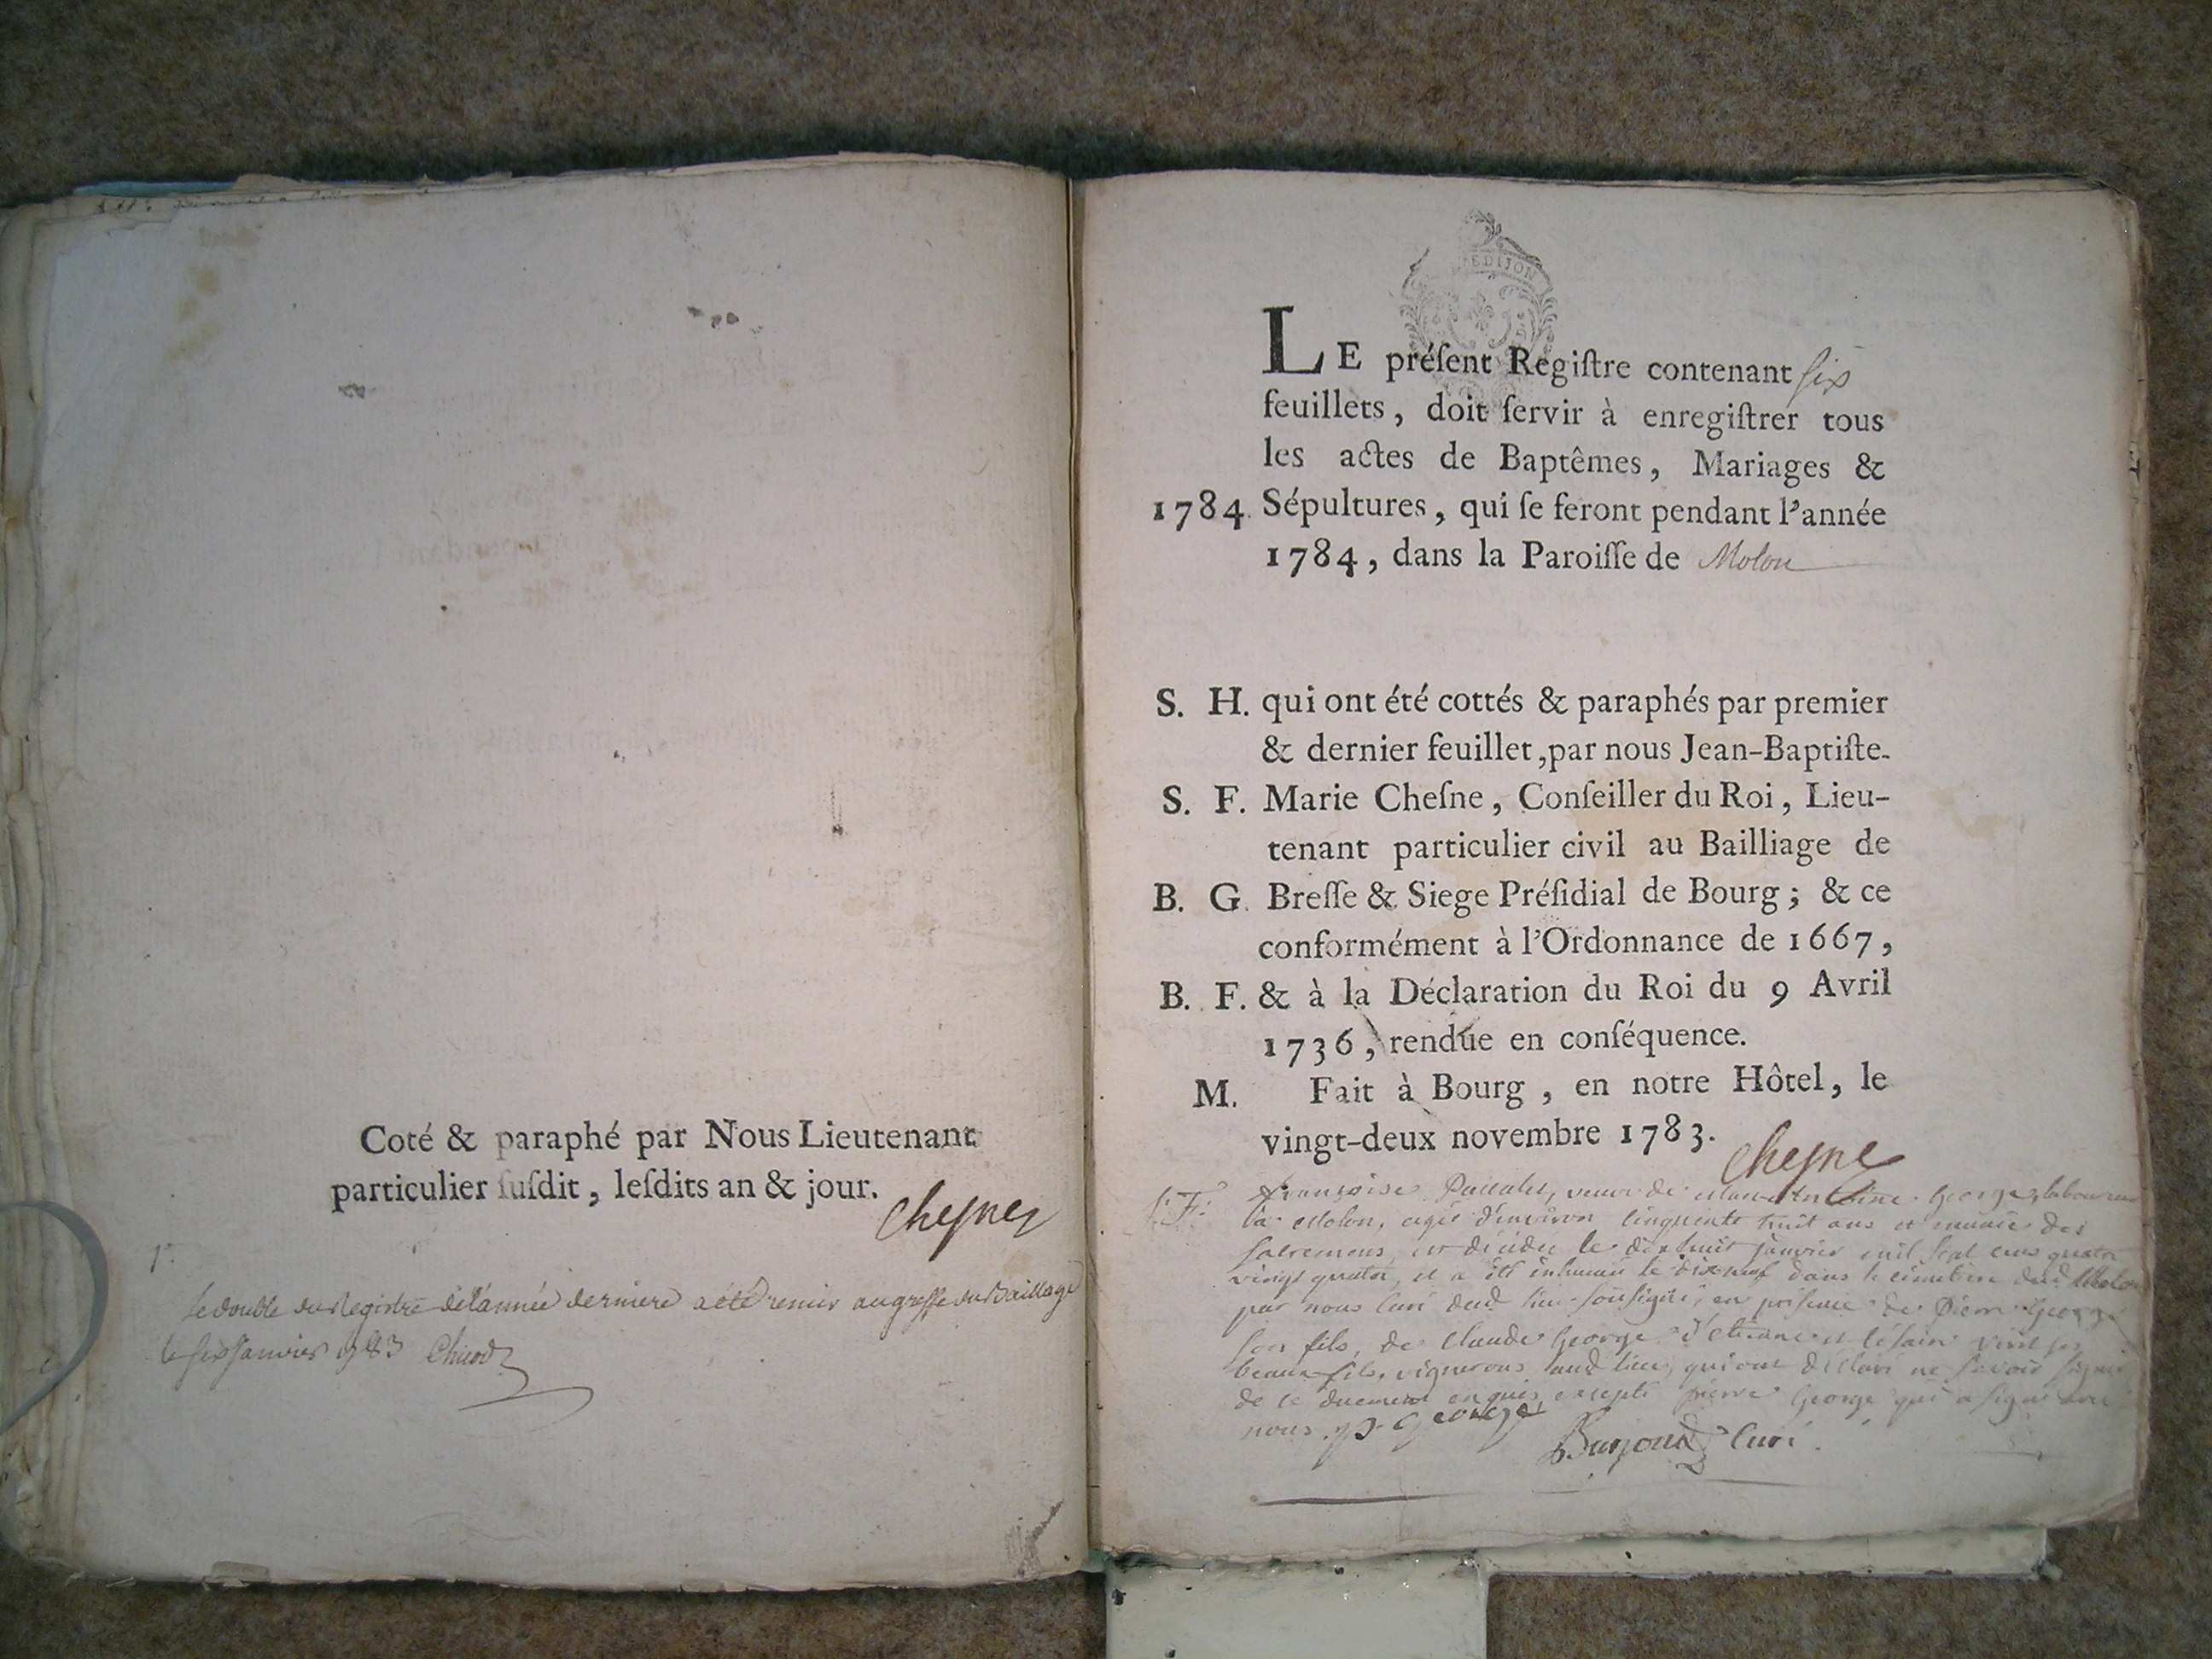 Coté & paraphé par Nous Lieutenant
particulier ſuſdit, leſdits an & jour.
Chesne
le double du Registre de l'année derniere a été remis au greffe du Baillage
le six Janvier 1783
EDIJON
LE préſent Regiſtre contenant six
feuillets, doit ſervir à enregiſtrer tous
les actes de Baptêmes, Mariages &
1784. Sépultures, qui ſe feront pendant l'année
1784, dans la Paroiſſe de Molon
S. H. qui ont été cottés & paraphés par premier
& dernier feuillet, par nous Jean-Baptiſte-
S. F. Marie Cheſne, Conſeiller du Roi, Lieu-
tenant particulier civil au Bailliage de
B. G. Breſſe & Siege Préſidial de Bourg; & ce
conformément à l'Ordonnance de 1667,
B. F. & à la Déclaration du Roi du 9 Avril
1736, rendue en conſéquence.
M. Fait à Bourg, en notre Hôtel, le
vingt-deux novembre 1783.
Chesne
S. F. françoise veuve de George, laboureur
à Molon, agée d'environ cinquante huit ans et munie des
sacremens, est décédée le dix huit janvier mil sept cens quatre
vingt quatre, et a été inhumée le dix neuf dans le cimetière dud Molon
par nous curé dud lieu soussigné, en présence de Pierre George
son fils, de Claude George d'etienne
beaux-fils, vignerons aud lieu, qui ont déclaré ne savoir signer
de ce duement enquis, excepté pierre George qui a signé avec
nous. p. George
curé.